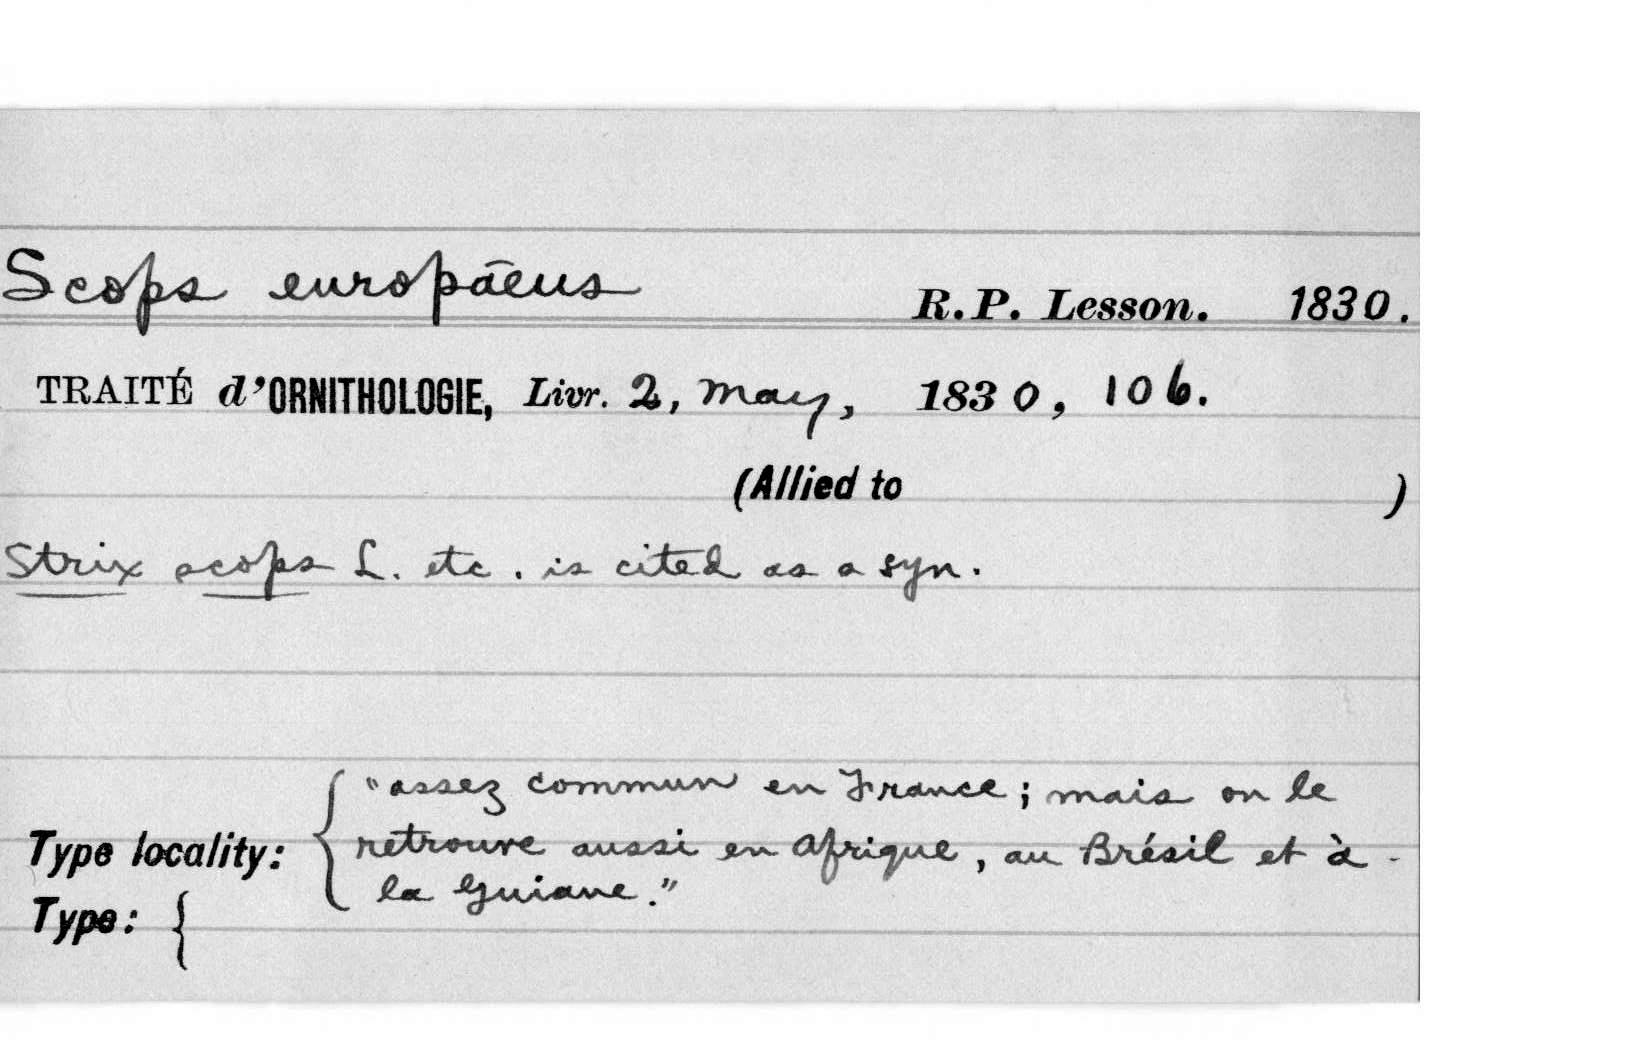 Scops europāeus R.P. Lesson. 1830.
TRAITÉ d'ORNITHOLOGIE, Livr. 2, May, 1830, 106.
(Allied to )
Strix scops L. etc. is cited as a syn.
"assez commun en France; mais on le
Type locality: { retrouve aussi en Afrique, au Brésil et à -
la Guiane."
Type: {